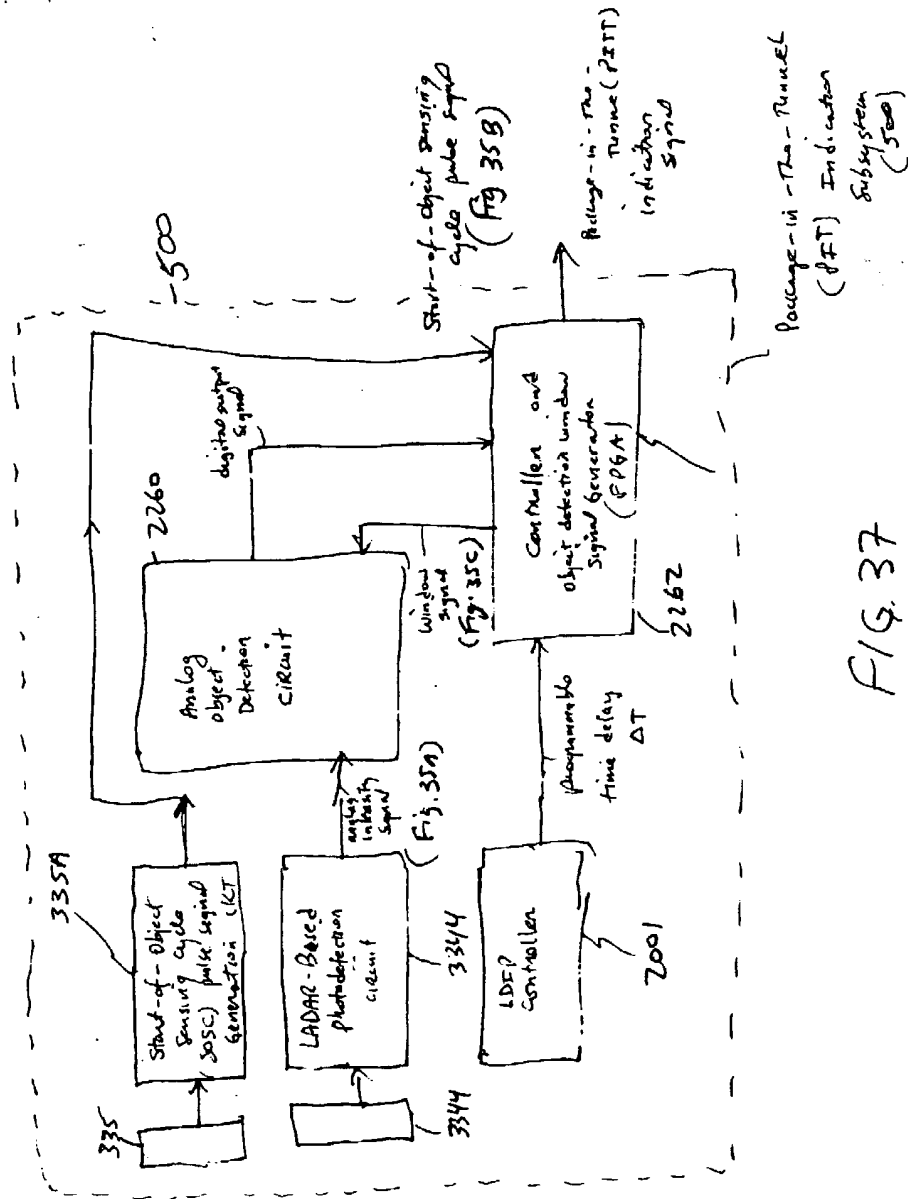 335A
Start-of-Object
Sensing Cycle
SOSC) pulse signal
Generation CKT
335
LADAR-Based
photodetection
circuit
3344
3344
LDIP
Controller
2001
2260
Analog
Object
Detection
Circuit
analog
intensity
signal
(Fig. 35A)
digital output
signal
Window
signal
(Fig. 35C)
programmable
time delay
ΔT
Controller and
Object detection window
Signal Generator
(FPGA)
2262
500
Start-of-Object sensing
cycle pulse signal
(Fig 35B)
Package-in-The-
Tunnel (PITT)
indication
signal
Package-in-The-Tunnel
(PITT) Indication
Subsystem
(500)
FIG. 37